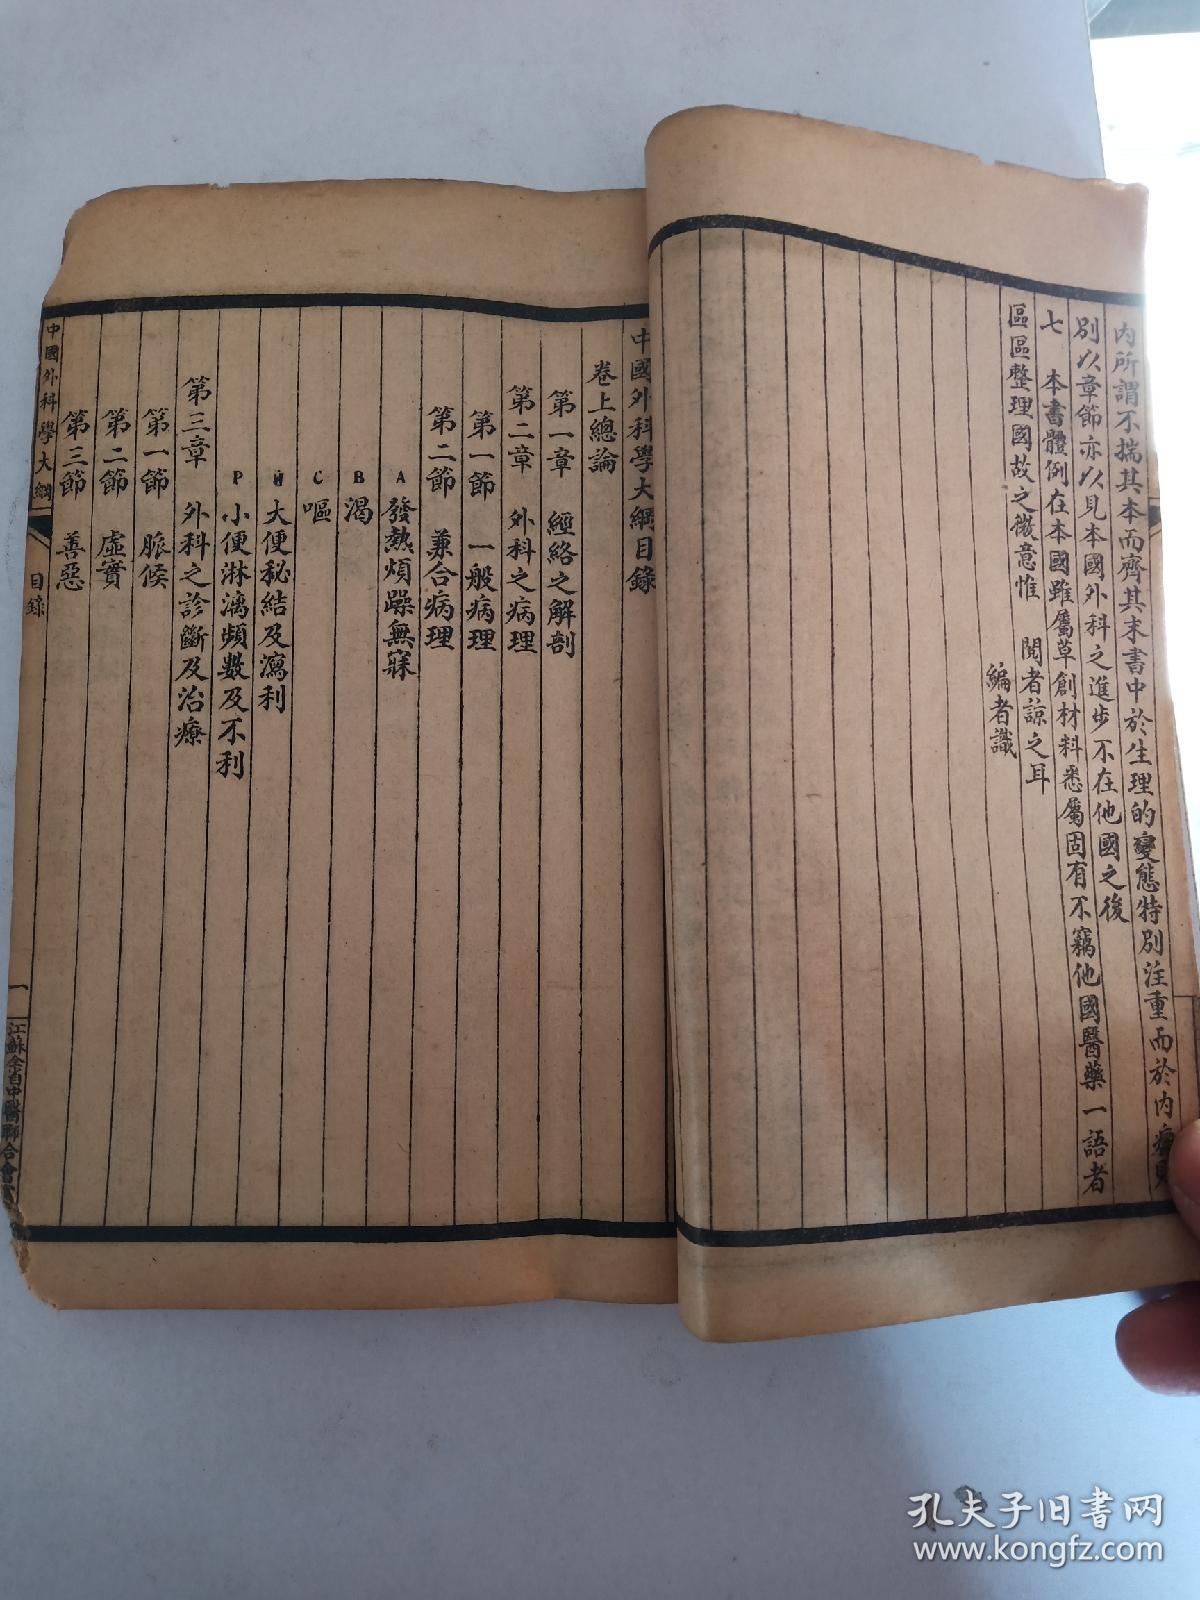 內所謂不揣其本而齊其末書中於生理的變態特別注重而於內
別以章節亦以見本國外科之進步不在他國之後
七　本書體例在本國雖屬草創材料悉屬固有不竊他國醫藥一語者
區區整理國故之微意惟　閱者諒之耳
編者識
中國外科學大綱目錄
卷上總論
第一章　經絡之解剖
第二章　外科之病理
第一節　一般病理
第二節　兼合病理
A　發熱煩躁無寐
B　渴
C　嘔
大便秘結及瀉利
P　小便淋漓頻數及不利
第三章　外科之診斷及治療
第一節　脈候
第二節　虛實
第三節　善惡
中國外科學大綱　目錄　一　江蘇全省中醫聯合會
孔夫子旧书网
www.kongfz.com